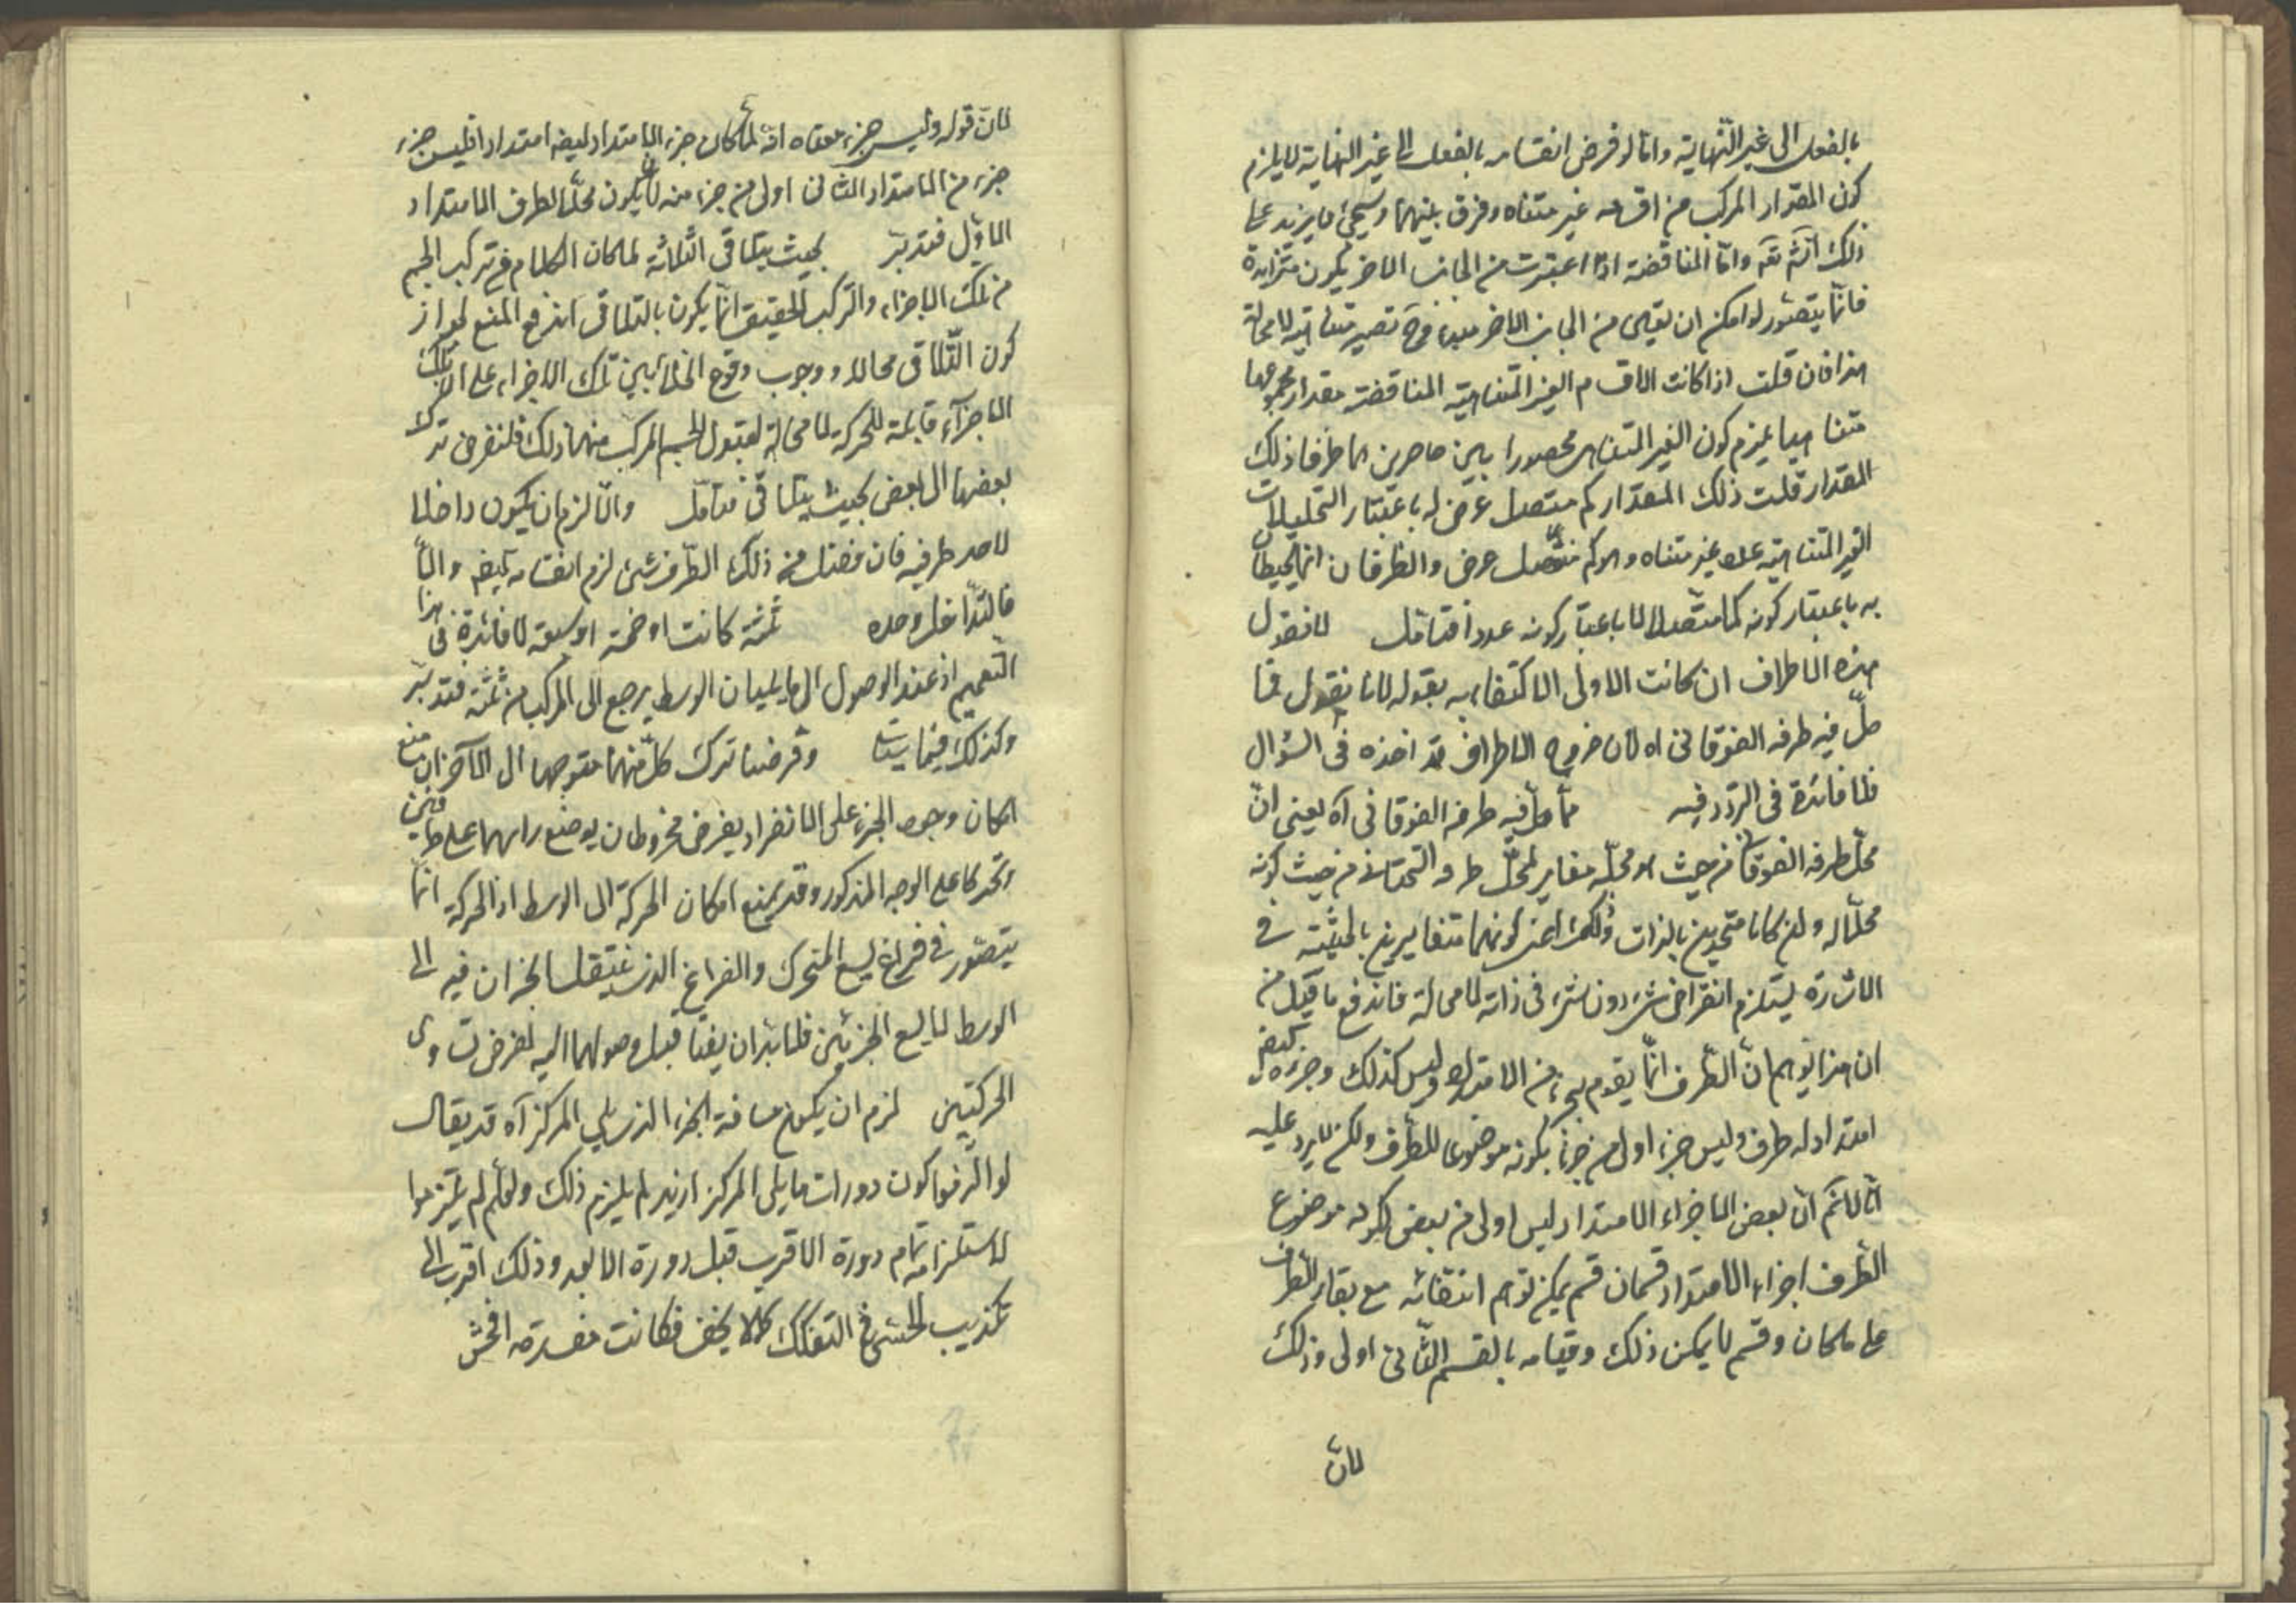 بالفعل الى غير النهاية واما لو فرض انقسامه بالفعل الى غير النهاية لا يلزم
كون المقدار المركب من اقسامه غير متناه وفرق بينهما وسيجئ ما يزيد على
ذلك انشَ تعَ واما المناقضة اذا اعتبرت من الجانب الاخر يكون متزايدة
فانما يتصور لو امكن ان يعين من الجانب الاخر مبدء وحَ تصير متناهية لا محالة
هذا فان قلت اذا كانت الاقسام الغير المتناهية المناقضة مقدار مجموعها
متناهيا يلزم كون الغير المتناهى محصورا بين حاصرين هما طرفا ذلك
المقدار قلت ذلك المقدار كم متصل عرض له باعتبار التحليلات
الغير المتناهية عدد غير متناه وهو كم منفصل عرض والطرفان انما يحيطان
به باعتبار كونه كما متصلا لا باعتبار كونه عددا فتامل لانا نقول
هذه الاطراف ان كانت الاولى الاكتفاء به بقوله لانا نقول فما
حلّ فيه طرفه الفوقانى اه لان خروج الاطراف قد اخذه فى السؤال
فلا فائدة فى التردد فيه فما حلّ فيه طرفه الفوقانى آه يعنى انّ
محلّ طرفه الفوقانى من حيث هو محلّه مغاير لمحلّ طرفه التحتانى من حيث كونه
محلّا له ولن كانا متحدين بالذات وذلك اعنى كونهما متغايرين بالحيثية فى
الاشارة يستلزم انفراض شئ دون شئ فى ذاته لا محالة فاندفع ما قيل من
ان هذا يوهم انّ الطرف انّما يقوم بجزء من الامتداد وليس كذلك وجزءه كبعض
امتداد له طرف وليس جزء اولى من جزء بكونه موضوعا للطرف ولكن لا يرد عليه
انا لانمَ انّ بعض الاجزاء الامتداد ليس اولى من بعض بكونه موضوع
الطرف اجزاء الامتداد قسمان قسم يمكن توهم انتفائه مع بقاء الطرف
على ما كان وقسم لا يمكن ذلك وقيامه بالقسم الثّانى اولى وذلك
لانّ
لانّ قوله وليس جزء معناه انّه لمّا كان جزء الامتداد ايضا امتدادا فليس جزء
جزء من الامتداد الثانى اولى من جزء منه لان يكون محلّا لطرف الامتداد
الاوّل فتدبّر بحيث يتلاقى الثلاثة لما كان الكلام فى تركب الجسم
من تلك الاجزاء والتركب الحقيقى انّما يكون بالتلاقى اندفع المنع لجواز
كون التّلاقى محالا ووجوب وقوع الخلأ بين تلك الاجزاء على انّ تلك
الاجزآء قابلة للحركة لا محالة لقبول الجسم المركب منها ذلك فلنفرض تحرك
بعضها الى بعض بحيث يتلاقى فتامّل والّا لزم ان يكون داخلا
لاحد طرفيه فان فضل من ذلك الطّرف شئ لزم انقسامه ايضا والّا
فالتّداخل وحده ثلثة كانت او خمسة او سبعة لا فائدة فى هذا
التّعميم اذ عند الوصول الى ما يليان الوسط يرجع الى المركب من ثلثة فتدبّر
وكذلك فيما سيأتى وفرضنا تحرك كلّ منهما متوجها الى الآخر ان منع
امكان وجود الجزء على الانفراد يفرض مخروطان يوضع راسهما على طرفين
وتحركا على الوجه المذكور وقد يمنع امكان الحركة الى الوسط اذ الحركة انّما
يتصوّر فى فراغ يسع المتحرك والفراغ الذى ينتقل الجزءان فيه الى
الوسط لا يسع الجزئين فلا بدّ ان يقفا قبل وصولهما اليه لفرض تساوى
الحركتين لزم ان يكون مسافة الجزء الذى يلى المركز آه قد يقال
لو التزموا كون دورات ما يلى المركز ازيد لم يلزم ذلك ولعلّهم لم يلتزموا
لاستلزامه تمام دورة الاقرب قبل دورة الابعد وذلك اقرب الى
تكذيب الحسّ من التفكك كما لا يخفى فكانت مفسدته افحش